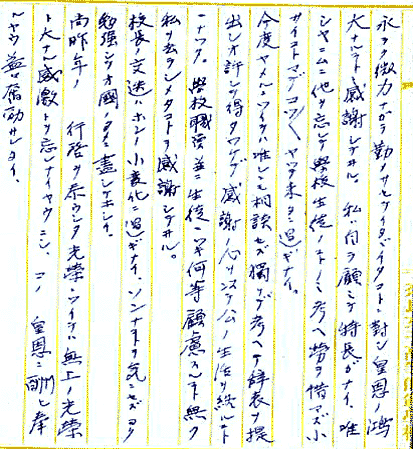 永ラク微力ナガラ勤メサセテイタダイタコトニ対シ皇恩ノ鴻
大ナルヲ感謝シテヰル。私ハ自ラ顧ミテ特長ガナイ、唯
シャニムニ他ヲ忘レテ学校生徒ノコトノミ考ヘ労ヲ惜マズ小
サイコトマデコツ〱ヤッテ来タニ過ギナイ。
今度ヤメルニツイテハ唯レニモ相談セズ独リデ考ヘテ辞表ヲ提
出シオ許シヲ得タワケデ感謝ノ心サンデ公ノ生活ヲ終ルコト
ニナッタ。学校職員並ニ生徒ニツキ何等顧慮スルコト無ク
私ヲ去ラシメタコトヲ感謝シテヰル。
校長ノ交迭ハホンノ小変化ニ過ギナイ、ソンナコトヲ気ニセズヨク
勉強シテオ国ノタメニ尽シテホシイ。
尚昨年ノ 行啓ヲ忝ウシタ光栄ニツイテハ無上ノ光栄
ト大ナル感激トヲ忘レナイヤウニシ、コノ 皇恩ニ酬ヒ奉
ルヤウ益々奮励サレタイ。